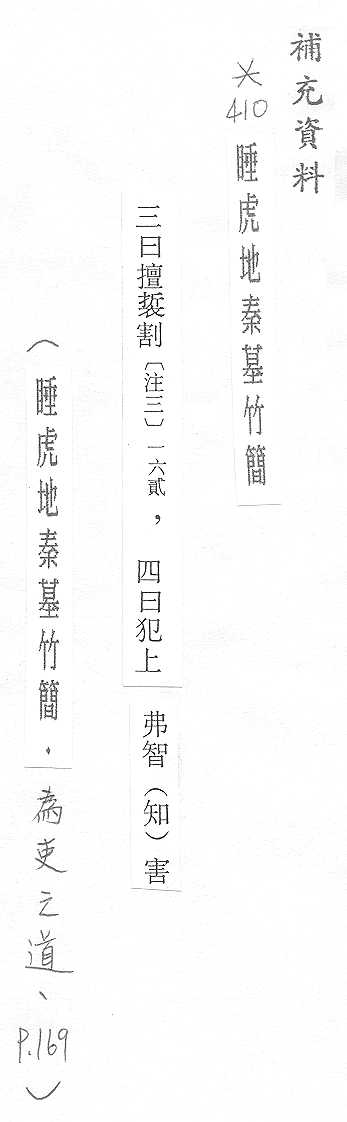 補充資料
※410 睡虎地秦墓竹簡
三曰擅裚割〔注三〕一六貳，四曰犯上弗智（知）害
（睡虎地秦墓竹簡．為吏之道、P.169）